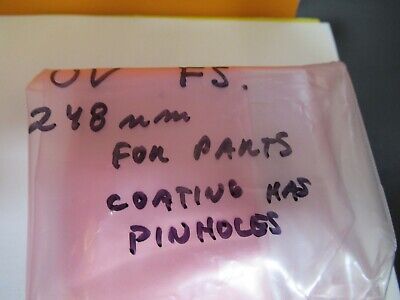 UV FS.
248 nm
FOR PARTS
COATING HAS
PINHOLES